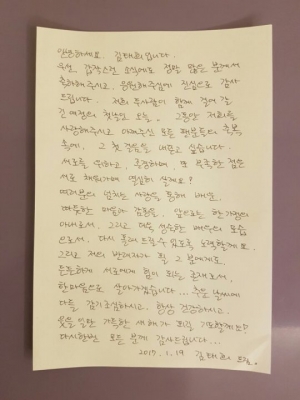 안녕하세요. 김태희입니다.
우선 갑작스런 소식에도 정말 많은 분께서
축하해주시고, 응원해주심에 진심으로 감사
드립니다. 저희 두사람이 함께 걸어 갈
긴 여정의 첫날인 오늘.. 그동안 저희를
사랑해주시고 아껴주신 모든 팬분들의 축복
속에, 그 첫 걸음을 내딛고 싶습니다.
서로를 위하고, 존경하며, 또 부족한 점은
서로 채워가며 열심히 살게요?
여러분의 넘치는 사랑을 통해 배운,
따뜻한 마음과 감동을, 앞으로는 한 가정의
아내로서, 그리고 더욱 성숙한 배우의 모습
으로서, 다시 돌려 드릴 수 있도록 노력할께요.
그리고 저의 반려자가 될 그 분에게도,
든든하게 서로에게 힘이 되는 존재로서,
한마음으로 살아가겠습니다... 추운 날씨에
다들 감기조심하시고, 항상 건강하시고,
웃을 일만 가득한 새해가 되길 기도할께요^^
다시한번 모든 분께 감사드립니다...
2017. 1. 19 김태희 드림.